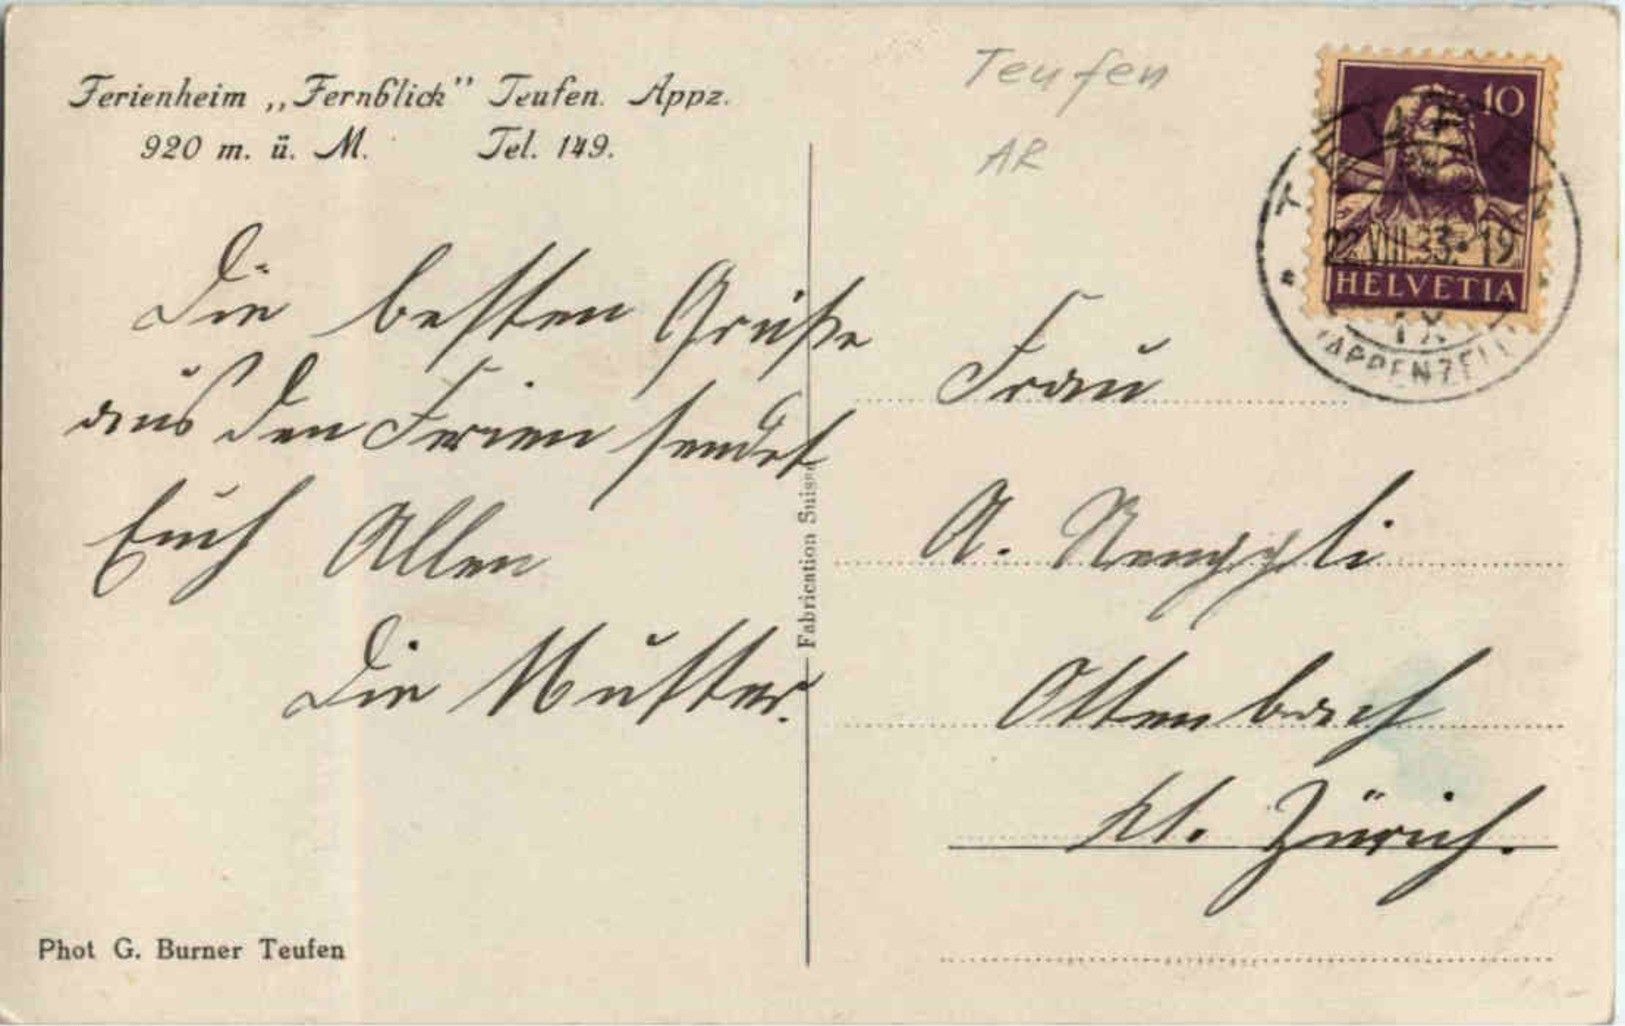 Ferienheim „Fernblick" Teufen. Appz.
920 m. ü. M. Tel. 149.
Teufen
AR
10
22.VIII.33.-19
HELVETIA
IX
(APPENZELL)
Die besten Grüße
aus den Ferien sendet
Euch Allen
Die Mutter.
Fabrication Suisse
Frau
A.
Ottenbach
Kt. Zürich.
Phot G. Burner Teufen